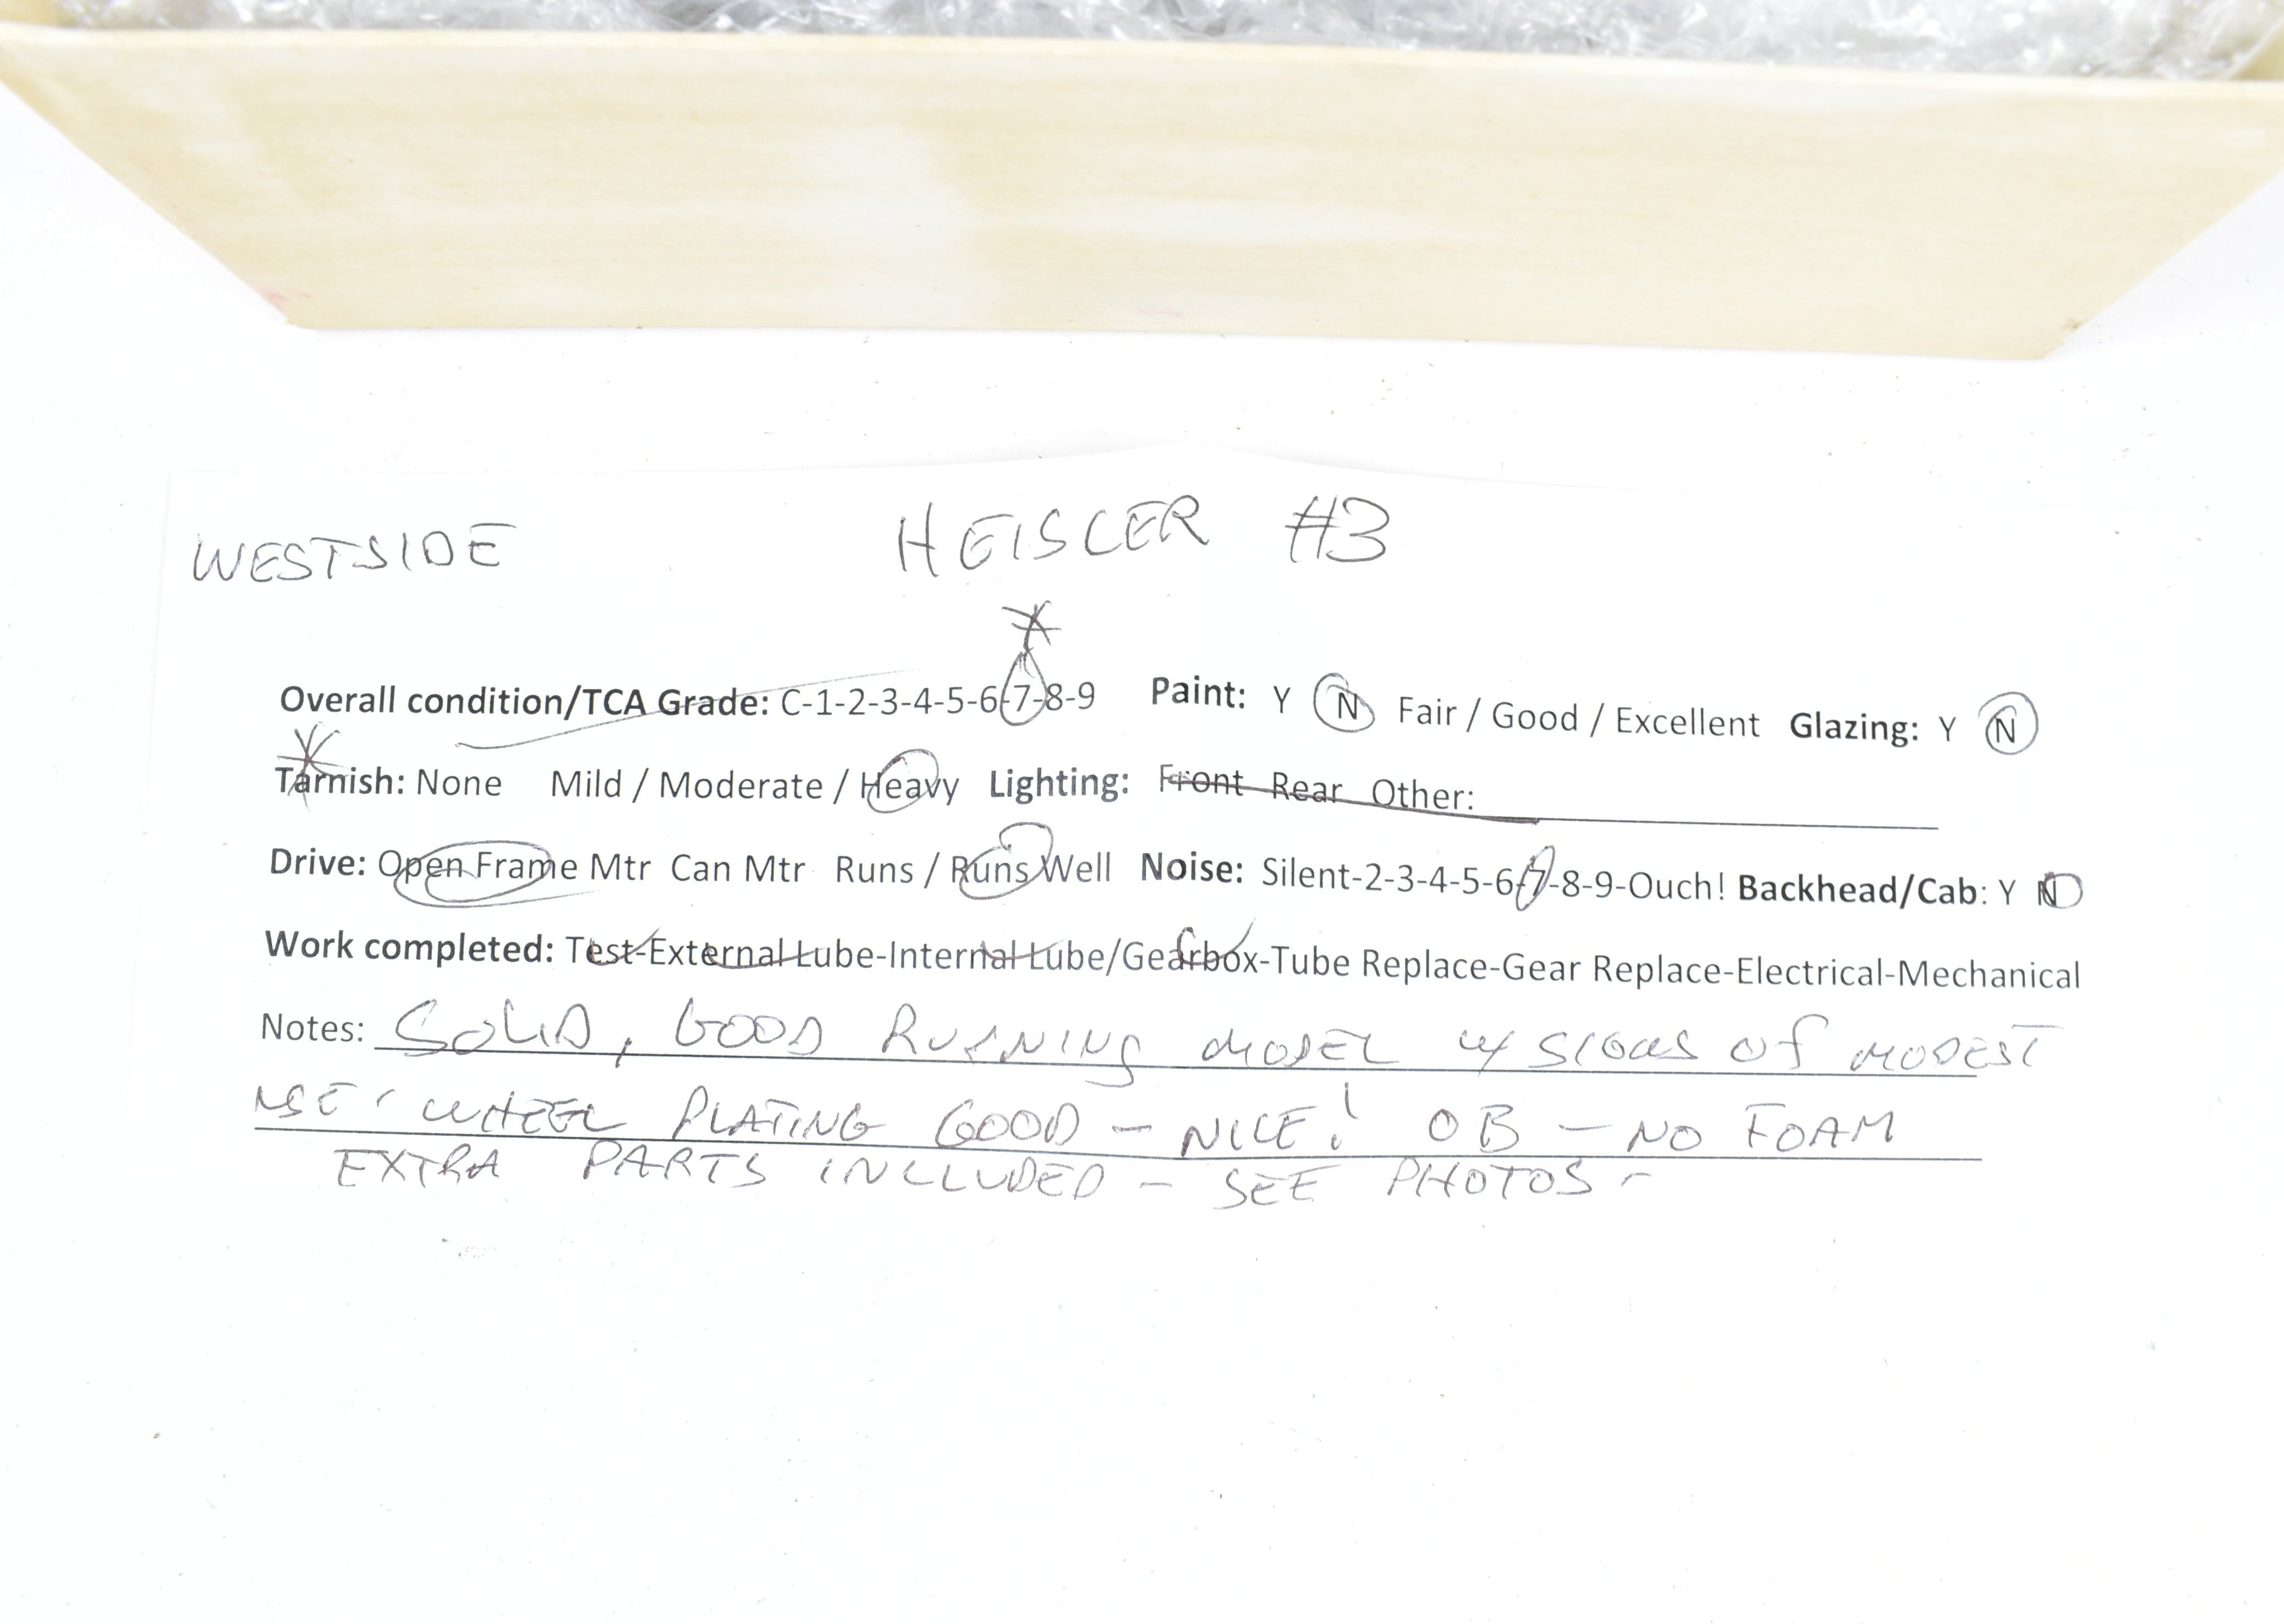 WESTSIDE HEISLER #3
Overall condition/TCA Grade: C-1-2-3-4-5-6-7-8-9 Paint: Y N Fair / Good / Excellent Glazing: Y N
Tarnish: None Mild / Moderate / Heavy Lighting: Front Rear Other:
Drive: Open Frame Mtr Can Mtr Runs / Runs Well Noise: Silent-2-3-4-5-6-7-8-9-Ouch! Backhead/Cab: Y N
Work completed: Test-External Lube-Internal Lube/Gearbox-Tube Replace-Gear Replace-Electrical-Mechanical
Notes: SOLID, GOOD RUNNING MODEL w/ SIGNS OF MODEST
USE! WHEEL PLATING GOOD - NICE! OB - NO FOAM
EXTRA PARTS INCLUDED - SEE PHOTOS -